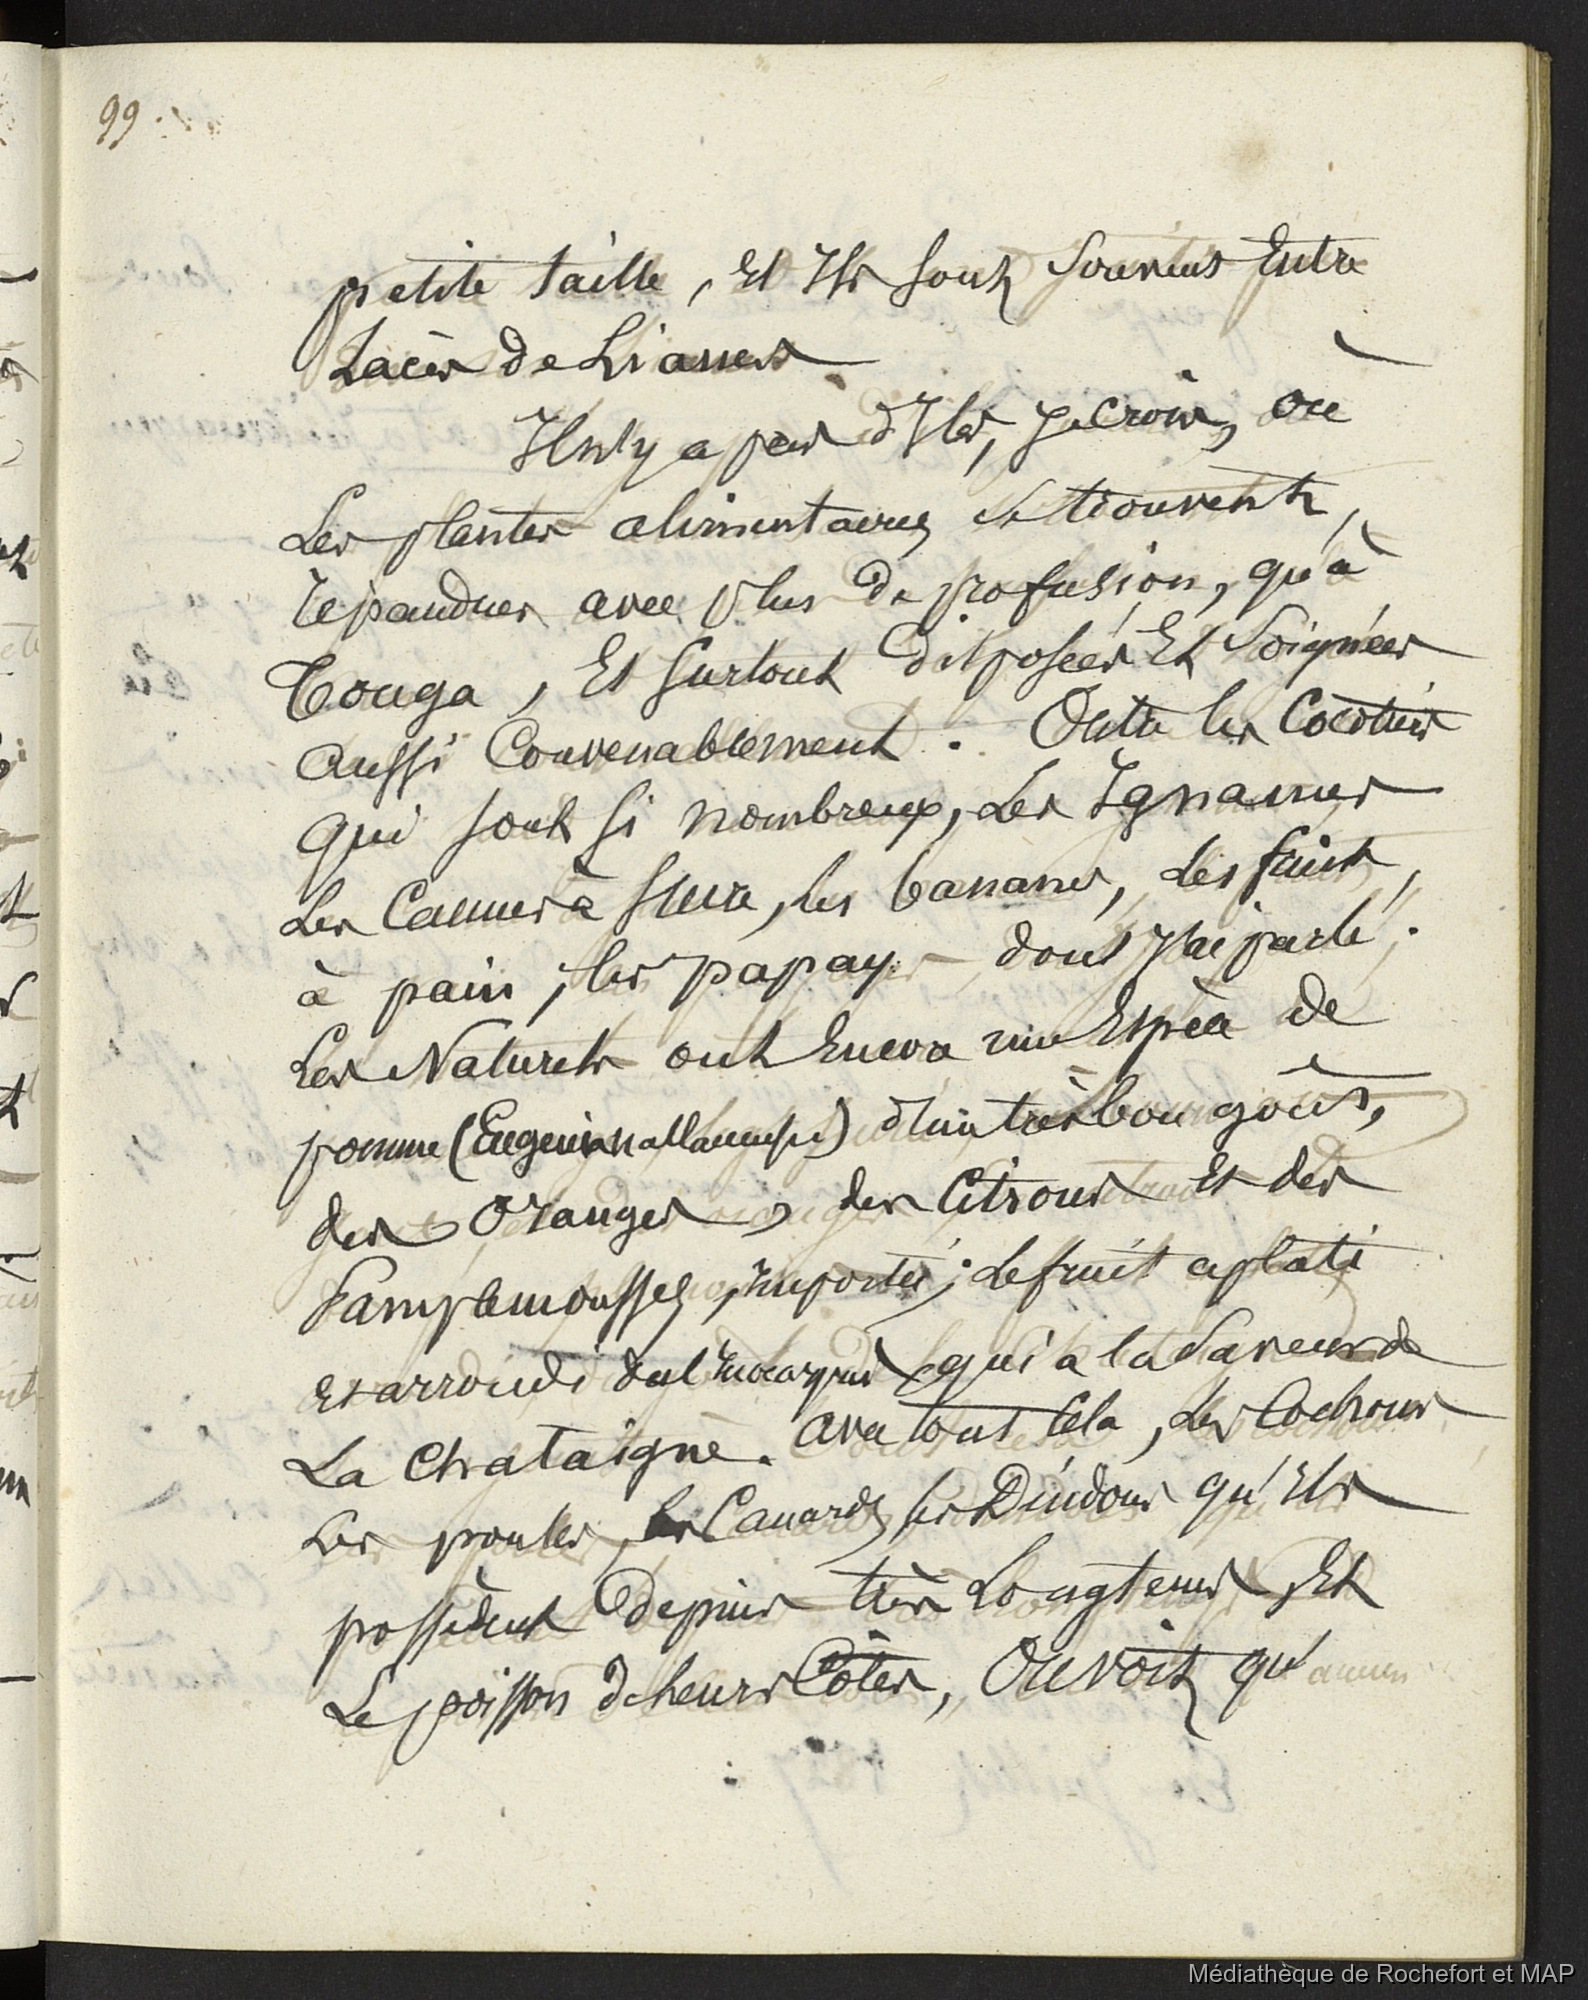 99.
petite taille, Et Ils sont souvens Entre
Lacés de Lianes
Il n'y a pas d'Iles, je crois, où
Les plantes alimentaires se trouvent,
répandues avec plus de profusion, qu'à
Tonga, Et surtout disposées Et soignées
aussi Convenablement. Outre les Cocotiers
qui sont si nombreux, Les Ignames
Les Cannes à sucre, les bananes, les fruits,
à pain, les papayes dont j'ai parlé.
Les Naturels ont Encore une Espèce de
pomme d'un très bon goût,
des Oranges, des Citrons Et des
Pamplemousses, Importés; Le fruit aplati
Et arrondi de l'Inocarpus qui a la Saveur de
La Chataigne. Avec tout Cela, Les Cochons
Les poules, les Canards, les Dindons qu'Ils
possèdent depuis très Longtems, Et
Le poisson de leurs Côtes, On voit qu'aucun
Médiathèque de Rochefort et MAP